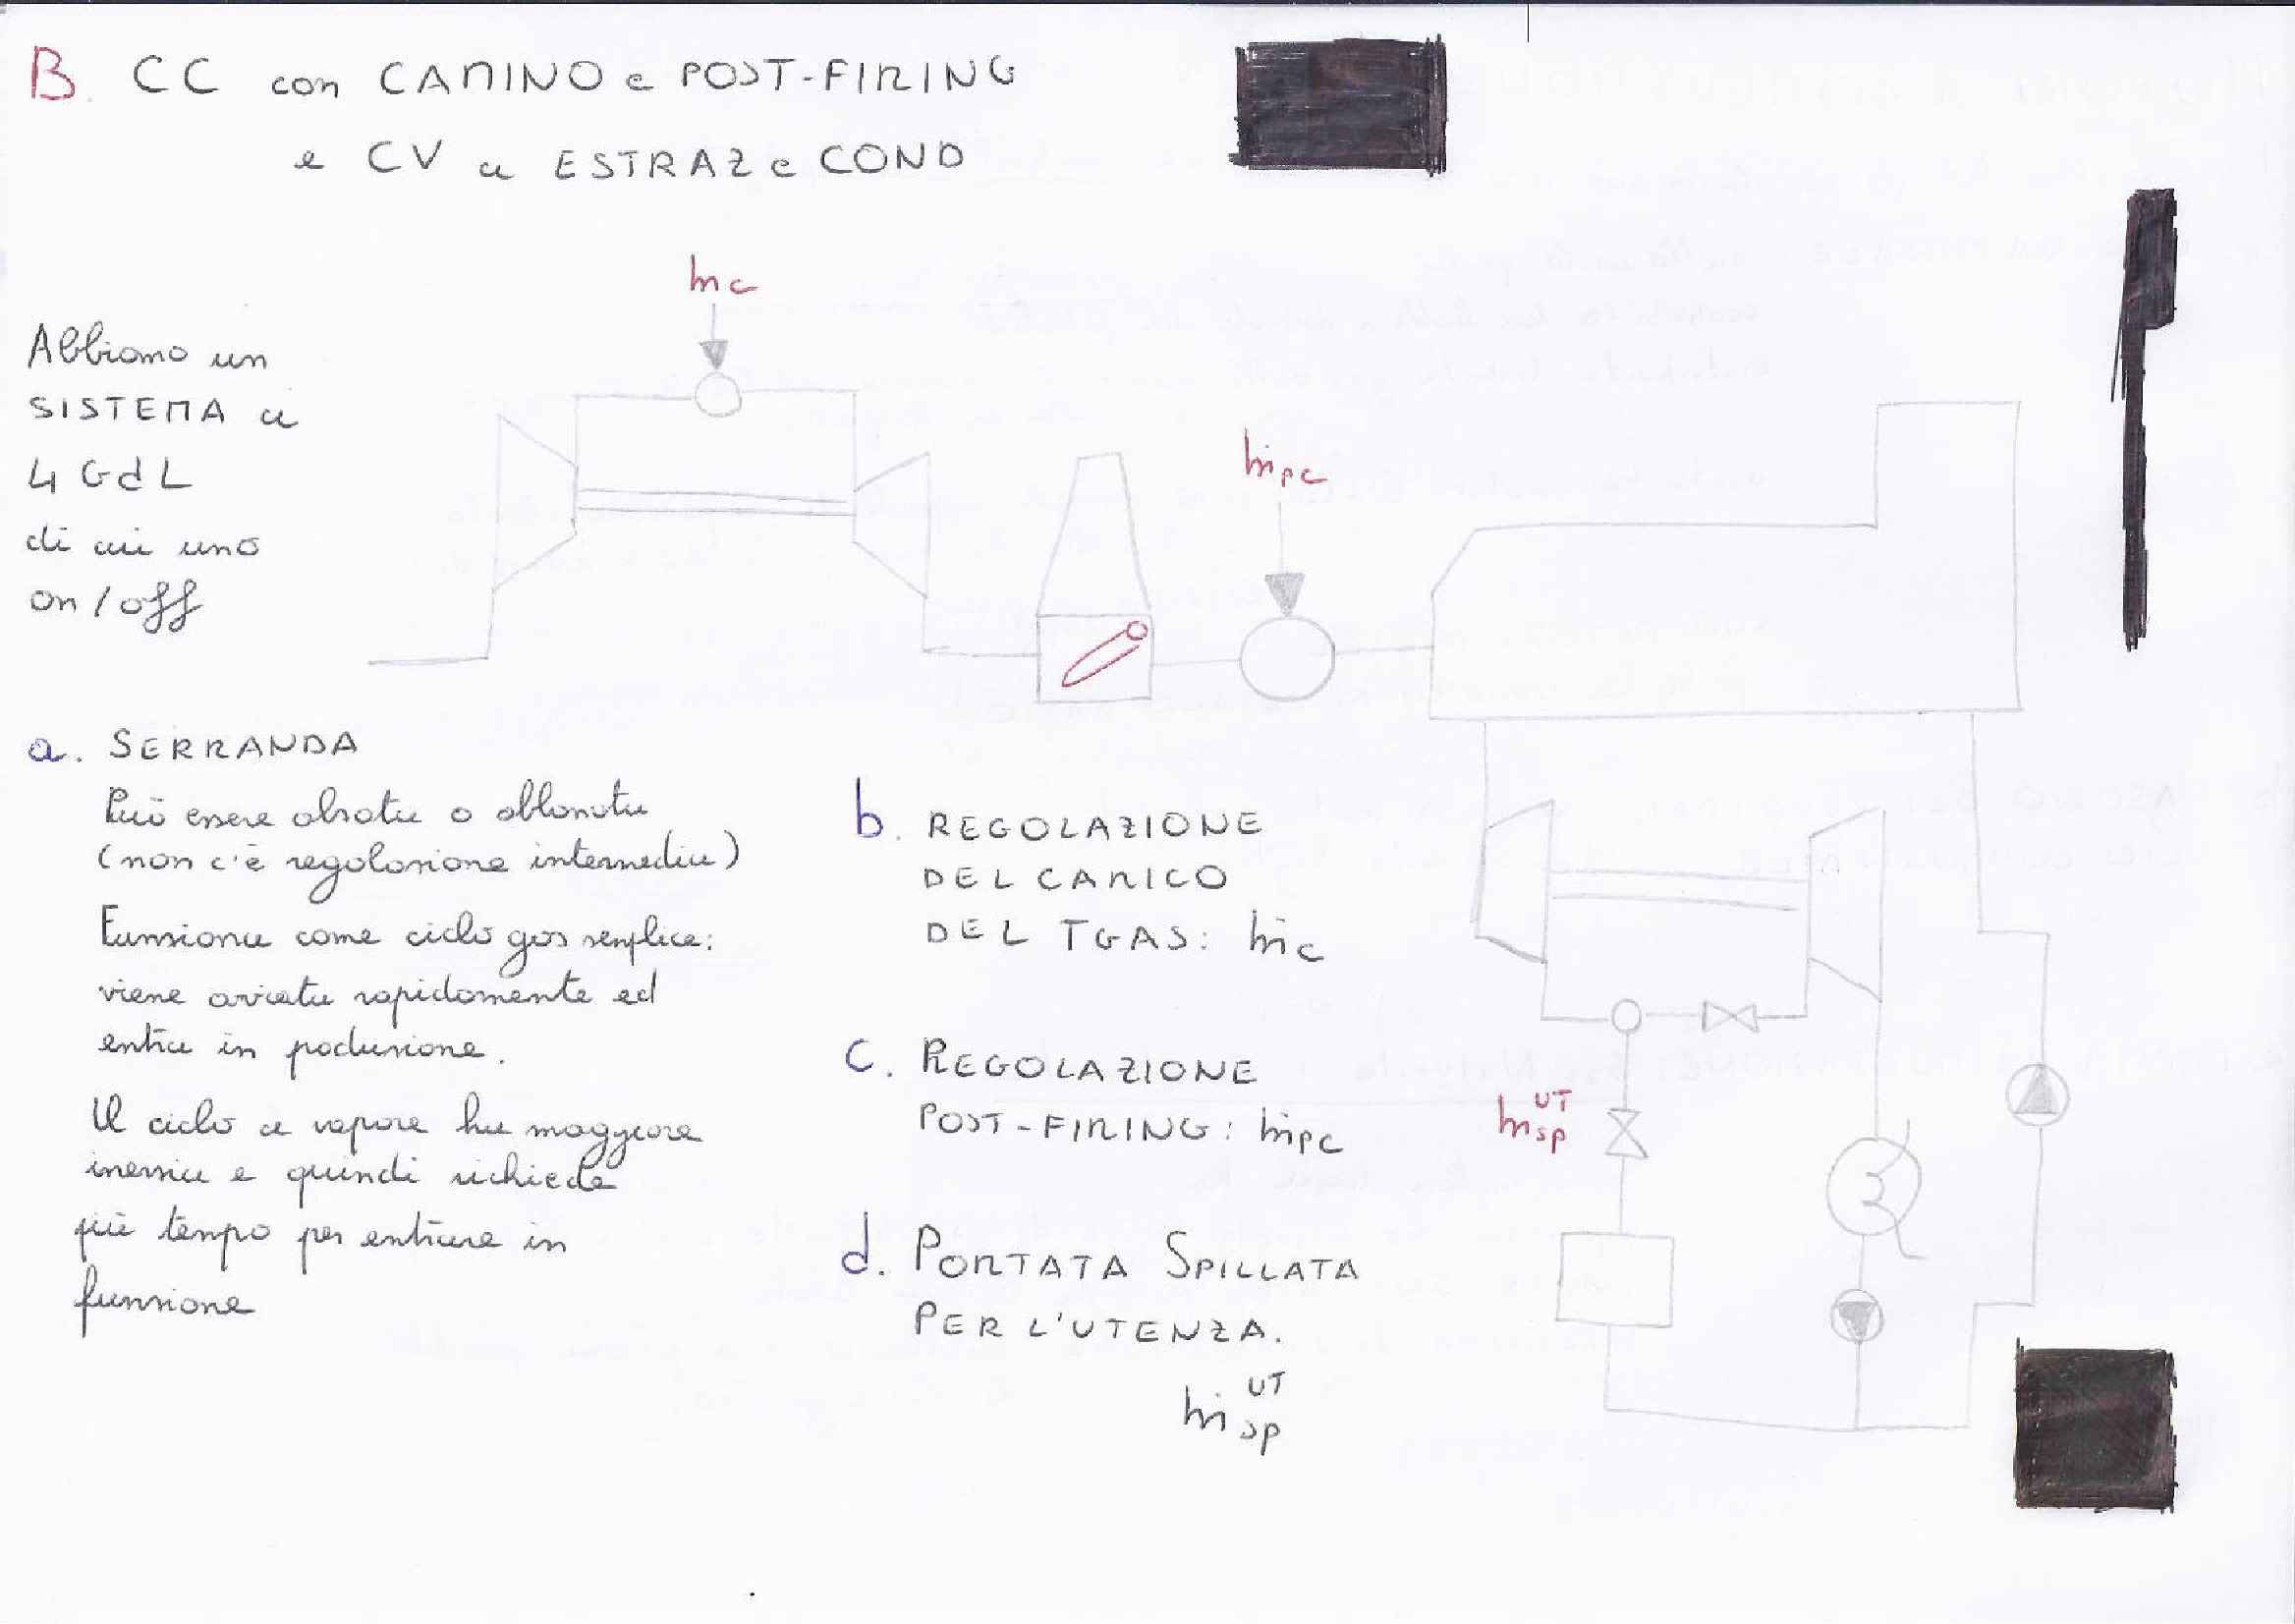 B. CC con CAMINO e POST-FIRING
e CV a ESTRAZ e COND
ṁc
Abbiamo un
SISTEMA a
4 GdL
di cui uno
on/off
ṁpc
a. SERRANDA
Può essere alzata o abbassata
(non c'è regolazione intermedia)
Funziona come ciclo gas semplice:
viene avviata rapidamente ed
entra in produzione.
Il ciclo a vapore ha maggiore
inerzia e quindi richiede
più tempo per entrare in
funzione
b. REGOLAZIONE
DEL CARICO
DEL TGAS: ṁc
c. REGOLAZIONE
POST-FIRING: ṁpc
d. PORTATA SPILLATA
PER L'UTENZA.
ṁ UT sp
ṁ UT sp